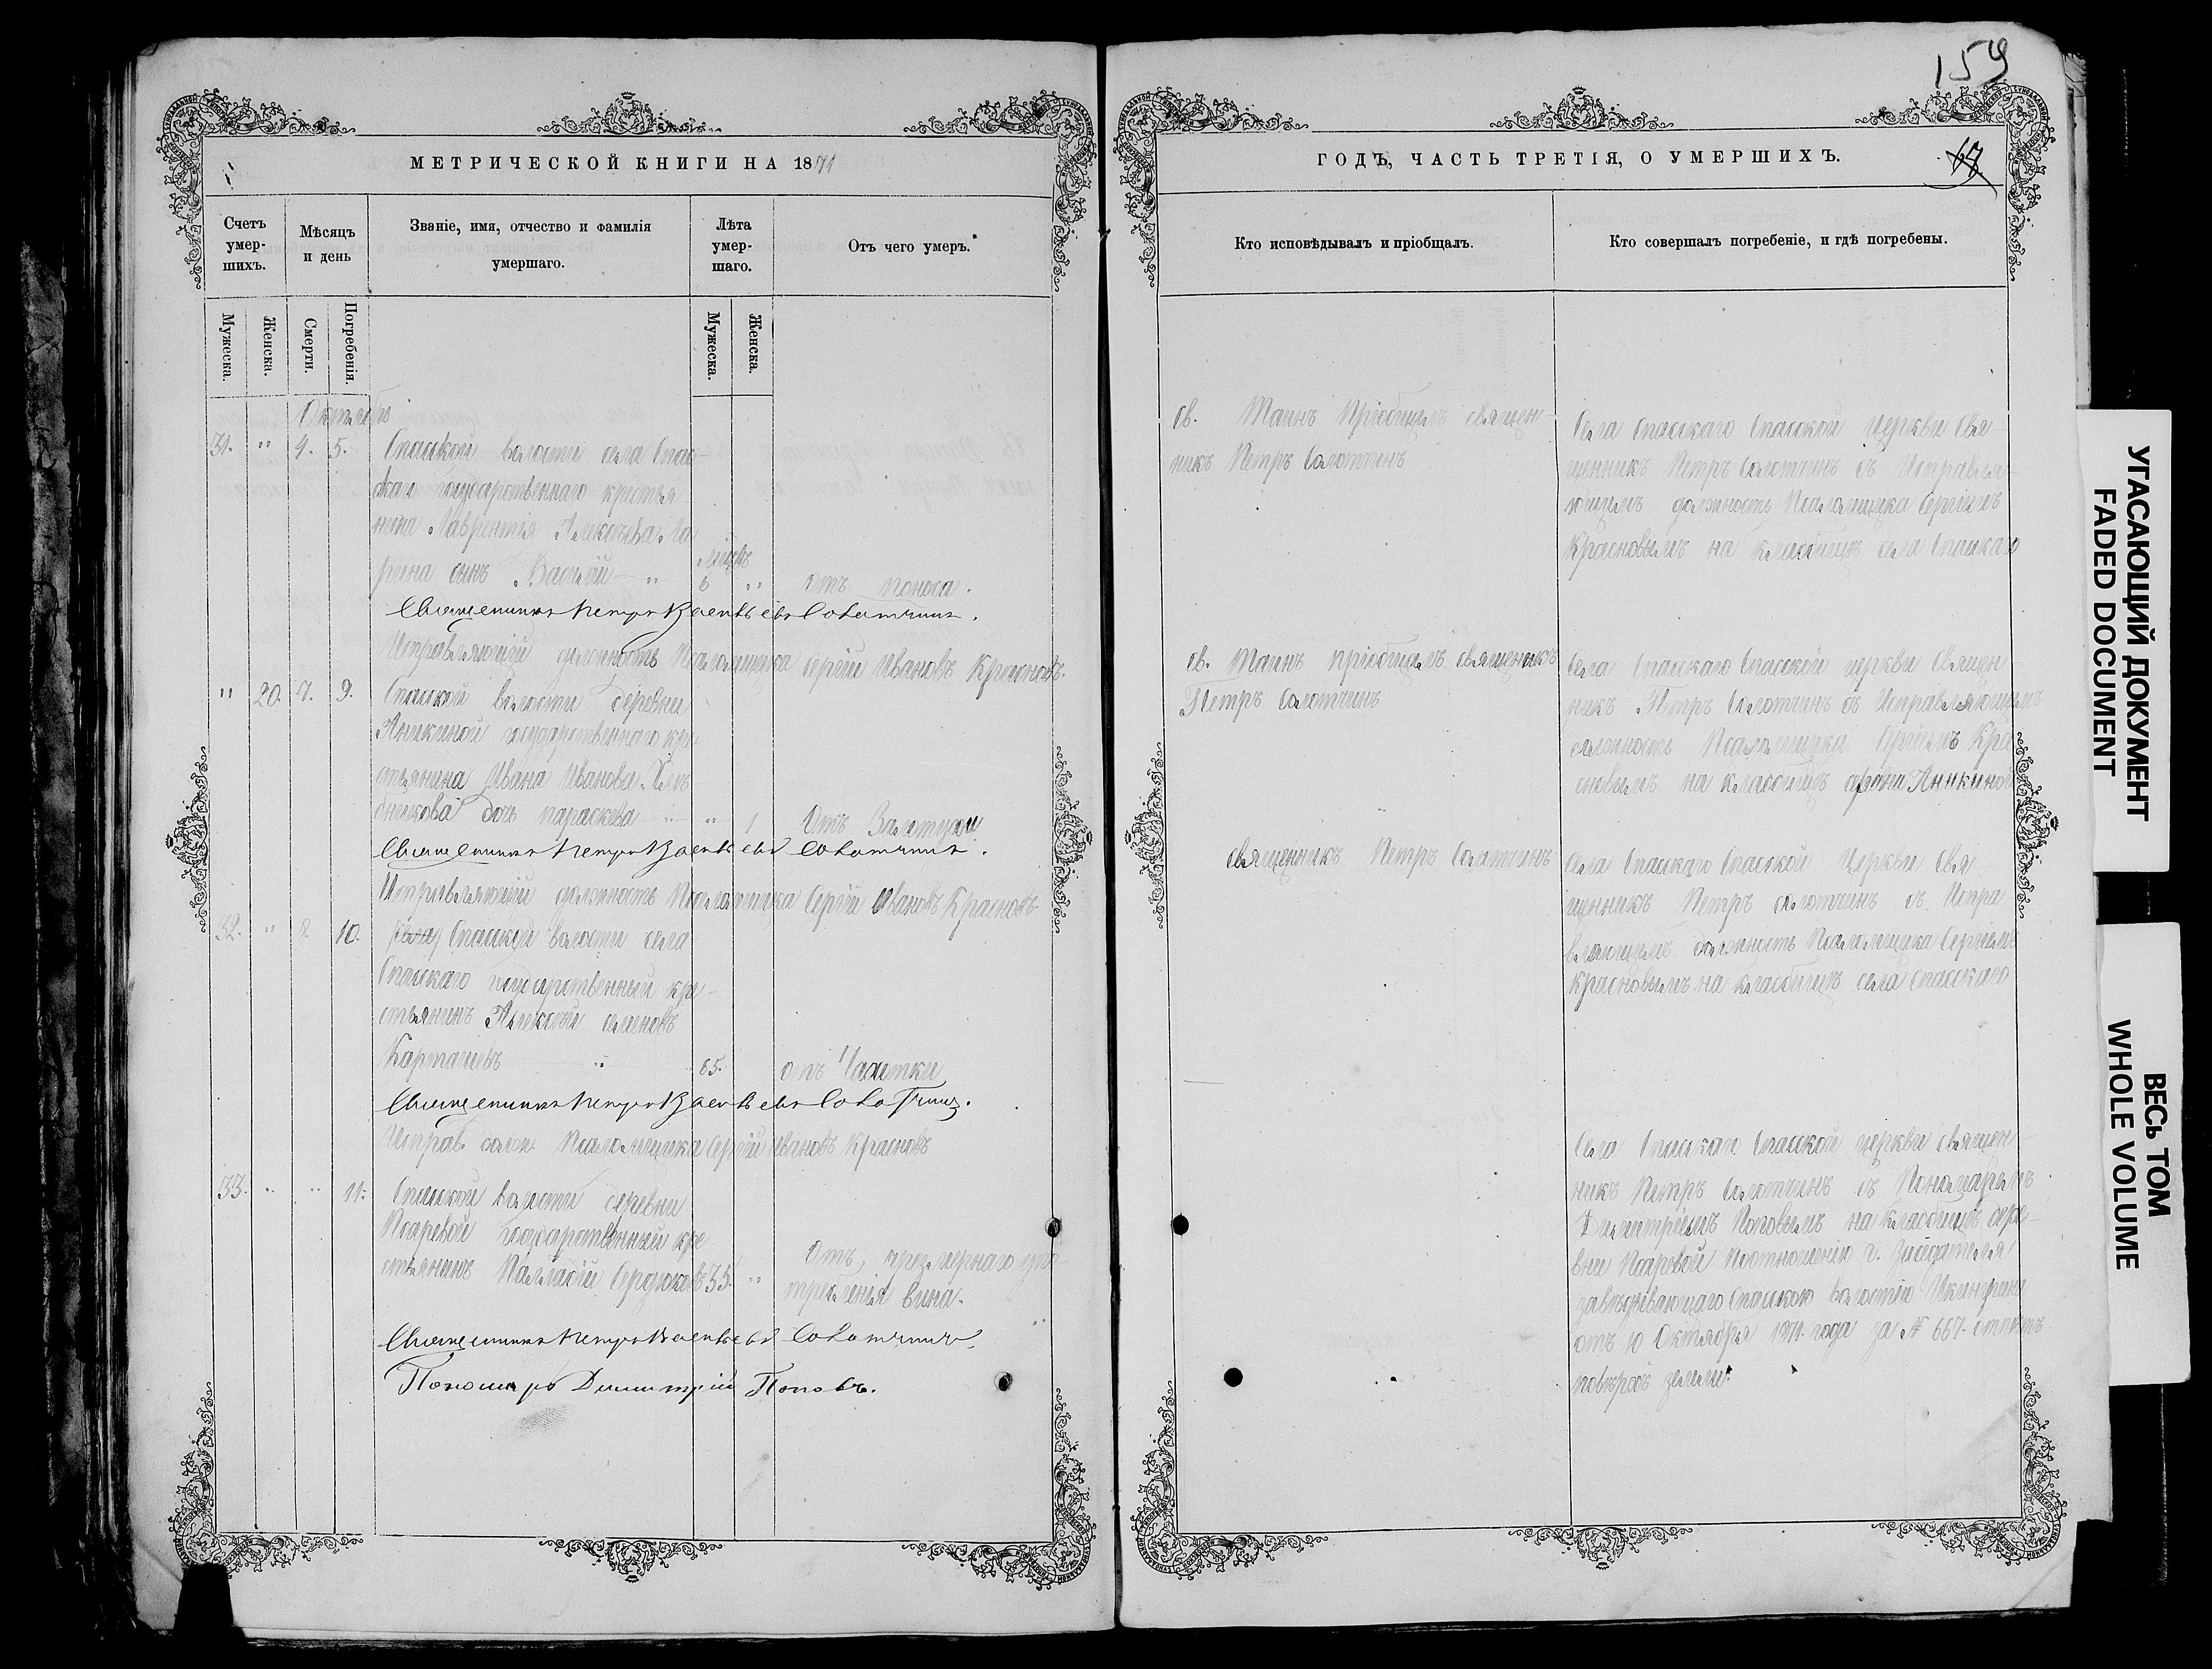 159
МЕТРИЧЕСКОЙ КНИГИ НА 1871
Счетъ умер-шихъ.
Мѣсяцъ и день
Званіе, имя, отчество и фамилія умершаго.
Лѣта умер-шаго.
Отъ чего умеръ.
Мужеска.
Женска.
Смерти.
Погребенія.
Мужеска.
Женска.
Октябрь
31. " 4. 5. Спасской волости села Спас-
скаго государственнаго крестья-
нина Лаврентія Алексѣева Ла
рина сынъ Василій " 6 " отъ поноса.
Священникъ Петръ Васильевъ Солотчинъ.
Исправляющій должность Псаломщика Сергій Ивановъ Красновъ.
" 20. 7. 9. Спасской волости деревни
Аникиной государственнаго кре
стьянина Ивана Иванова
дочь параскева " " 1 Отъ Золотухи
Священникъ Петръ Васильевъ Солотчинъ.
Исправляющій должность Псаломщика Сергій Ивановъ Красновъ
32. " 8. 10. (села) Спасской волости села
Спасскаго государственный кре-
стьянинъ Алексѣй семеновъ
" 65. отъ Чахотки
Священникъ Петръ Васильевъ Солотчинъ.
Исправ. долж. Псаломщика Сергій Ивановъ Красновъ
33. " " 11. Спасской волости деревни
Псаревой государственный кре
стьянинъ Палладій 35. " Отъ, чрезмернаго упо-
требленія вина.
Священникъ Петръ Васильевъ Солотчинъ.
Пономарь Димитрій Поповъ.
ГОДЪ, ЧАСТЬ ТРЕТІЯ, О УМЕРШИХЪ.
67
Кто исповѣдывалъ и пріобщалъ.
Кто совершалъ погребеніе, и гдѣ погребены.
св. Таинъ Пріобщилъ священ-
никъ Петръ Солотчинъ
Села Спасскаго Спасской Церкви Свя-
щенникъ Петръ Солотчинъ съ Исправля
ющимъ должность Псаломщика Сергіемъ
Красновымъ на кладбищѣ села Спасскаго
св. Таинъ пріобщалъ священникъ
Петръ Солотчинъ
Села Спасскаго Спасской церкви Священ
никъ Петръ Солотчинъ съ Исправляющимъ
должность Псаломщика Сергіемъ Кра
сновымъ на кладбищѣ дерни Аникиной
священникъ Петръ Солотчинъ
Села Спасскаго Спасской Церкви Свя
щенникъ Петръ Солотчинъ съ Испра
вляющимъ должность Псаломщика Сергіемъ
Красновымъ на кладбищѣ села Спасскаго
Села Спасскаго Спасской церкви священ-
никъ Петръ Солотчинъ съ Пономаремъ
Димитріемъ Поповымъ на кладбищѣ дере-
вни Псаревой Поотношенію г. Засѣдателя
завѣдывающаго Спасскою волостію
отъ 10 Октября 1871 года за № 667. отпѣтъ
поверхъ земли.
УГАСАЮЩИЙ ДОКУМЕНТ
FADED DOCUMENT
ВЕСЬ ТОМ
WHOLE VOLUME